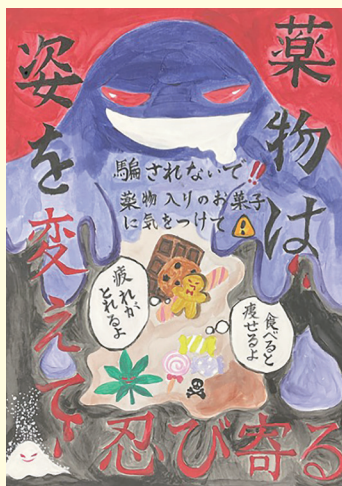 薬物は
姿を変えて、
忍び寄る
騙されないで!!
薬物入りのお菓子
に気をつけて⚠
疲れが
とれるよ
食べると
痩せるよ